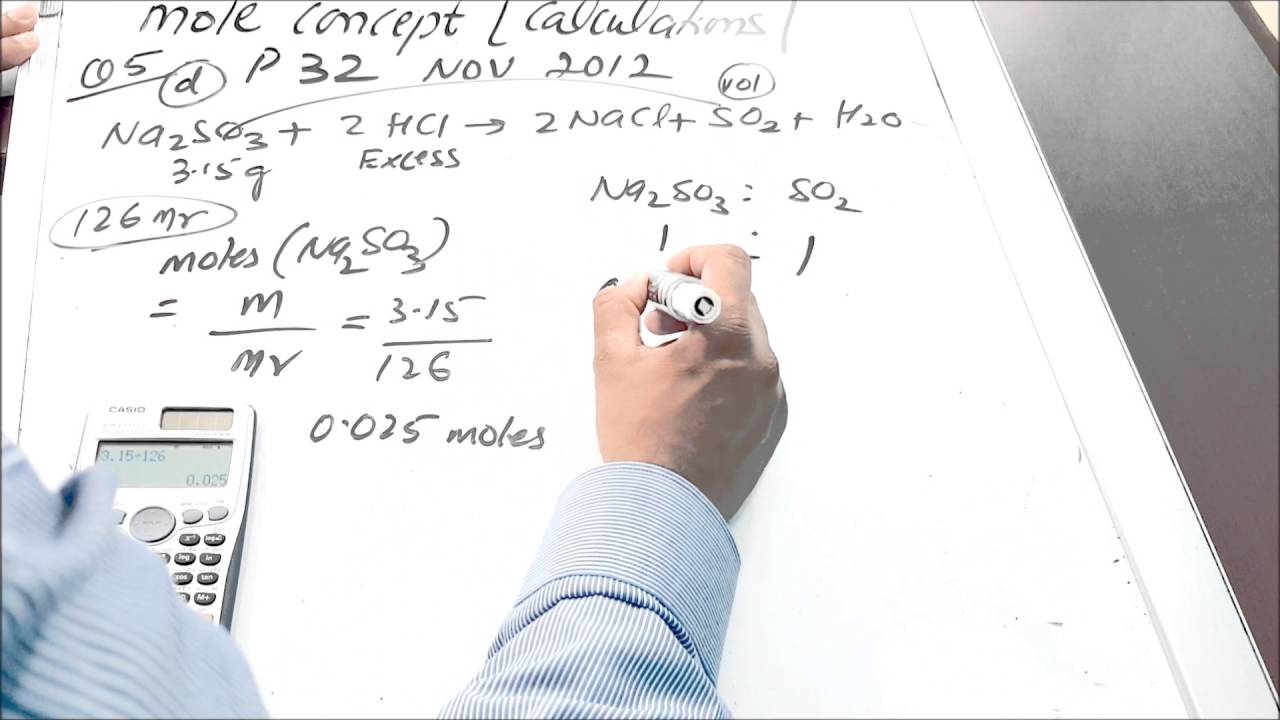 mole concept [ Calculations ]
Q5 (d) P 32 NOV 2012
vol
Na2SO3 + 2 HCl → 2 NaCl + SO2 + H2O
3.15g Excess
126 Mr
Na2SO3 : SO2
1 : 1
moles (Na2SO3)
= m/Mr = 3.15/126
0.025 moles
CASIO
3.15÷126
0.025
log
ln
cos
tan
M+